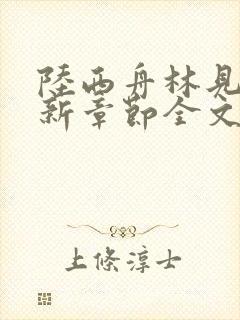 陸西舟林見
新章節全文
上條淳士